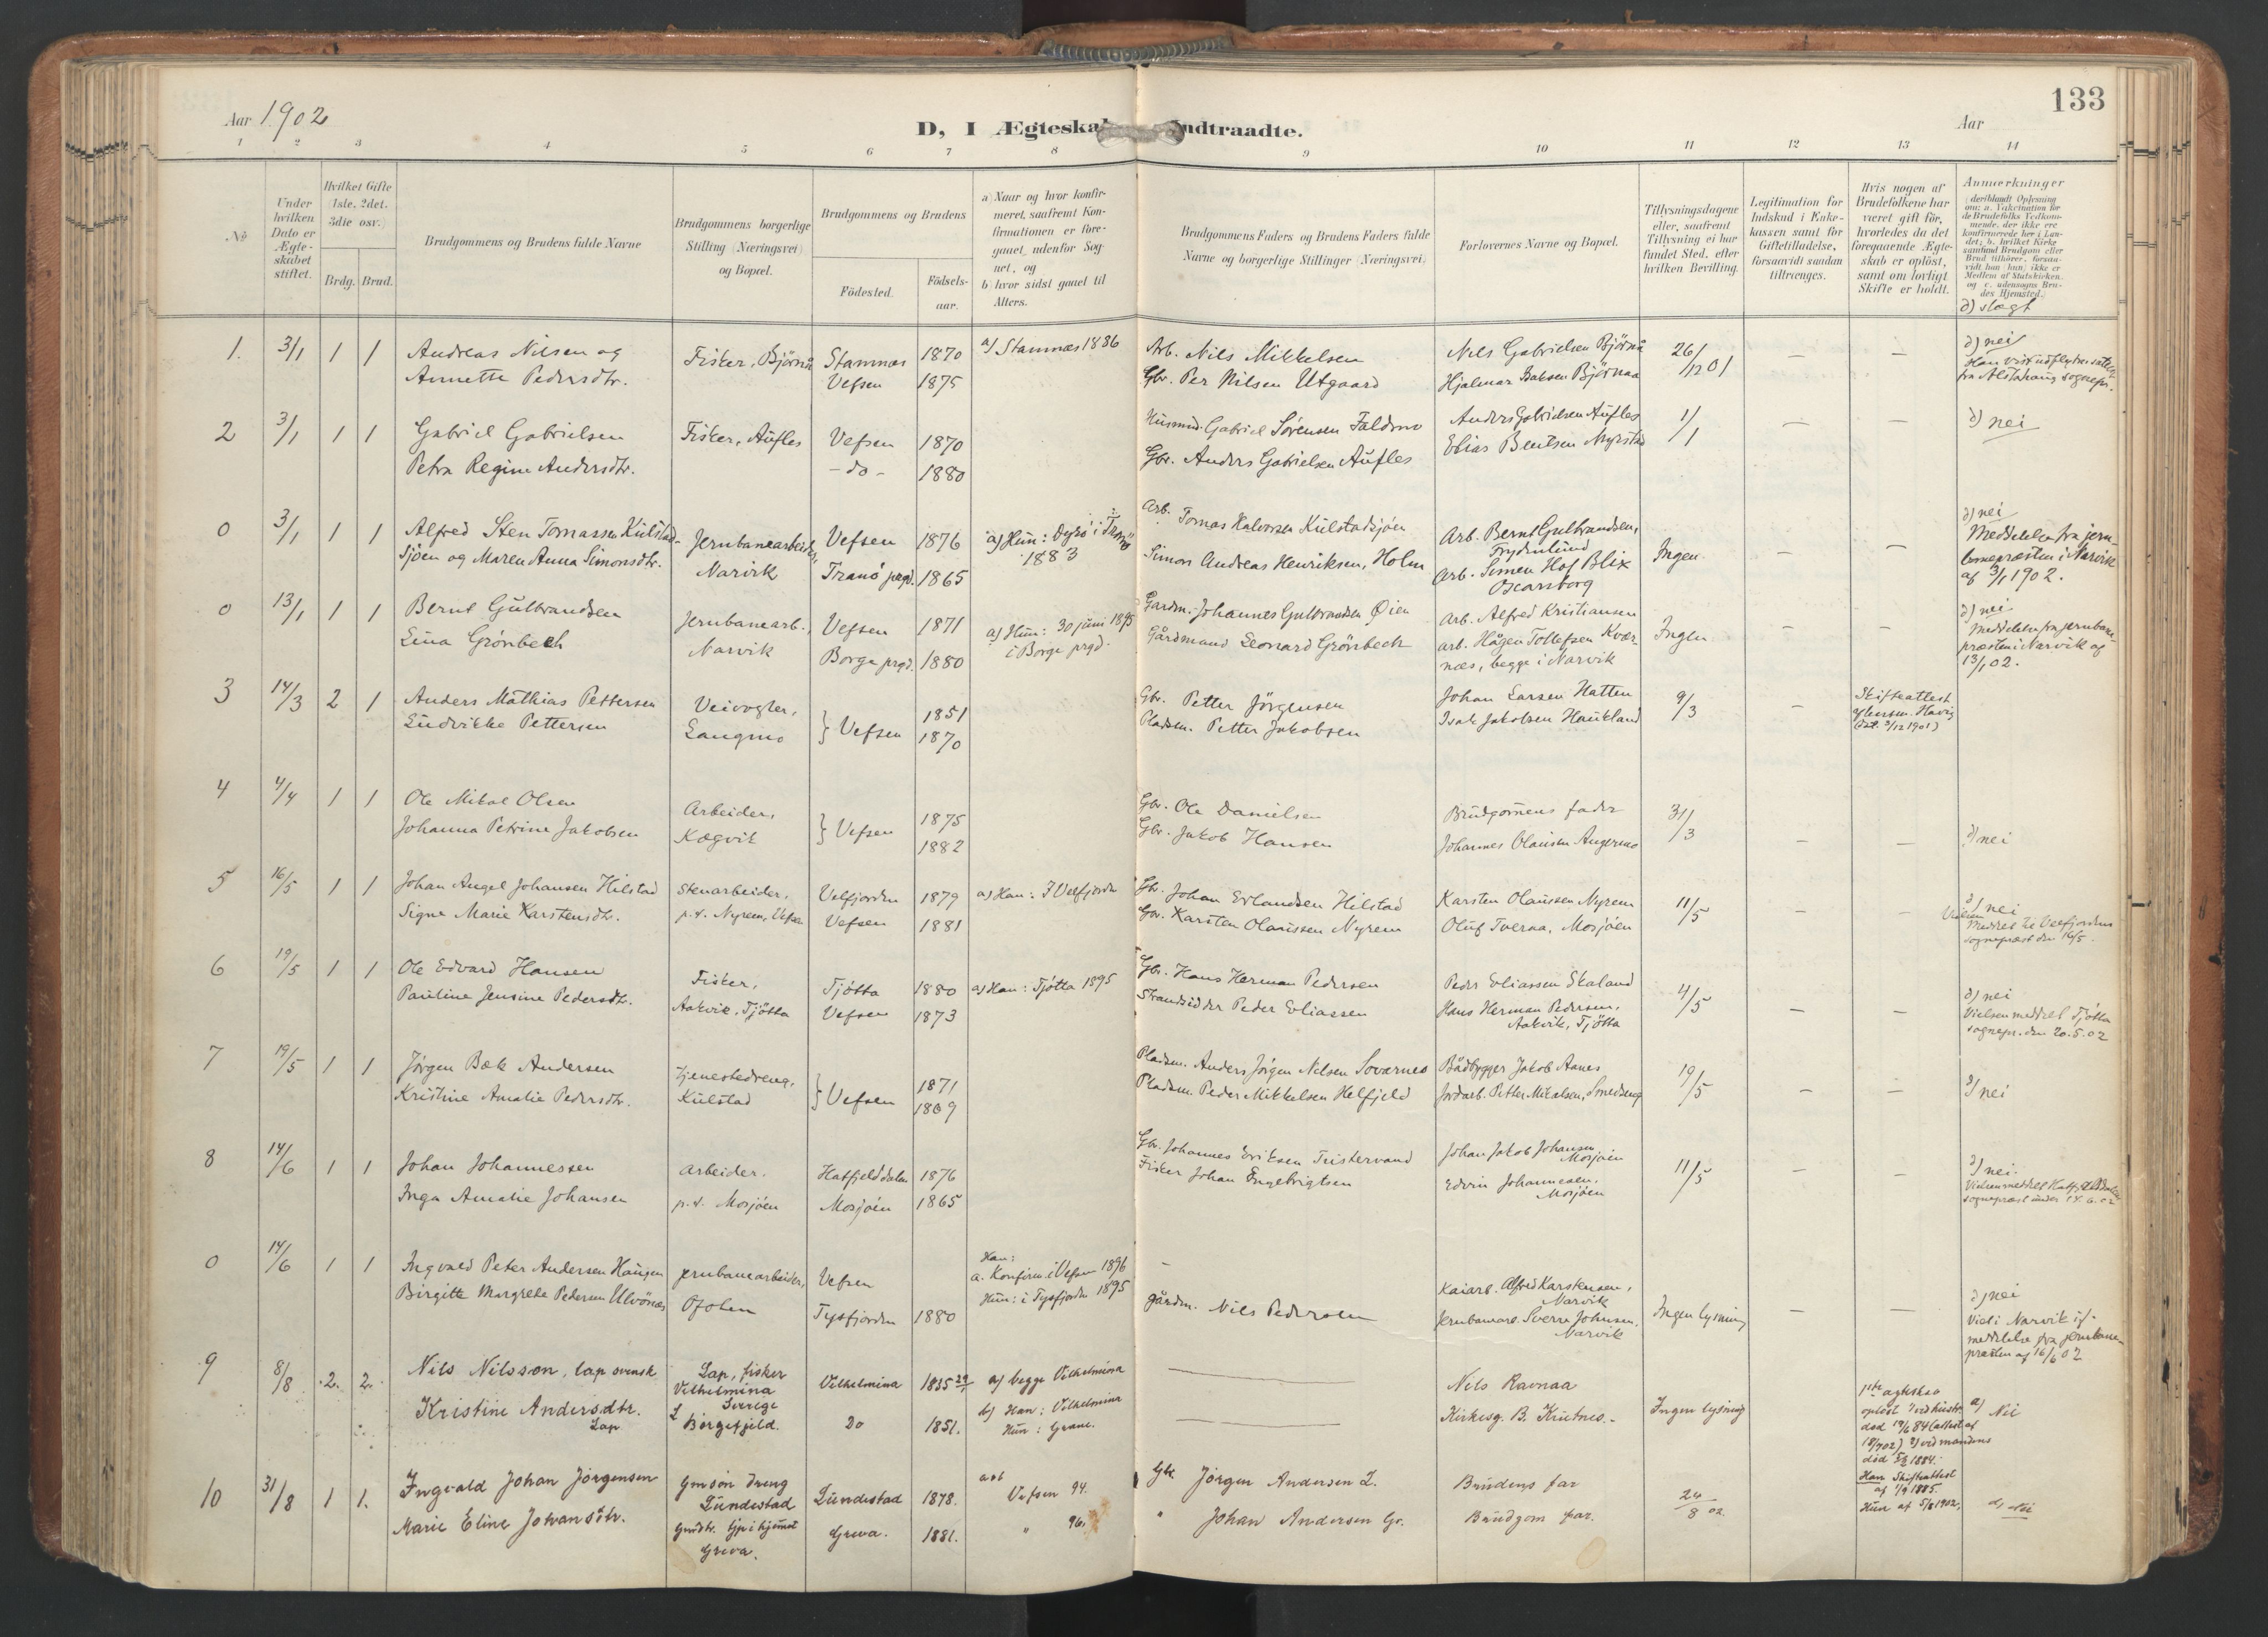 133
Aar 1902
D, I Ægteska
Indtraadte.
Aar
1 2 3 4 5 6 7 8 9 10 11 12 13 14
No
Under hvilken Dato er Ægteskabet stiftet.
Hvilket Gifte (1ste, 2det, 3die osv.)
Brdg. Brud.
Brudgommens og Brudens fulde Navne
Brudgommens borgerlige Stilling (Næringsvei) og Bopæl.
Brudgommens og Brudens
Födested.
Födselsaar.
a) Naar og hvor konfirmeret, saafremt Konfirmationen er foregaaet udenfor Sognet, og
b) hvor sidst gaaet til Alters.
Brudgommens Faders og Brudens Faders fulde Navne og borgerlige Stillinger (Næringsvei)
Forlovernes Navne og Bopæl.
Tillysningsdagene eller, saafremt Tillysning ei har fundet Sted, efter hvilken Bevilling.
Legitimation for Indskud i Enkekassen samt for Giftetilladelse, forsaavidt saadan tiltrænges.
Hvis nogen af Brudefolkene har været gift för, hvorledes da det foregaaende Ægteskab er oplöst, samt om lovligt Skifte er holdt.
Anmærkninger (deriblandt Oplysning om: a. Vakcination for de Brudefolks Vedkommende, der ikke ere konfirmerede her i Landet; b. hvilket Kirkesamfund Brudgom eller Brud tilhörer, forsaavidt han (hun) ikke er Medlem af Statskirken, og c. udensogns Brudes Hjemsted.)
d) slægt
1. 3/1 1 1 Andreas Nilsen og Fisker, Björnå Stamnæs 1870 a) Stamnæs 1886 Arb. Nils Mikkelsen Nils Gabrielsen Björnå 26/12 01 — — d) nei
Annette Pedersdtr. Vefsen 1875 Gbr. Per Nilsen Utgaard Hjalmar Baksen Björnaa fra Alstahaug sognepr.
2 3/1 1 1 Gabriel Gabrielsen Fisker, Aufles Vefsen 1870 Husmd. Gabriel Sörensen Anders Gabrielsen Aufles 1/1 — — d) nei
Petra Regine Andersdtr. -do- 1880 Gbr. Anders Gabrielsen Aufles Elias Bentsen Myrstad
0 3/1 1 1 Alfred Sten Tomassen Kulstad- Jernbanearbeider, Vefsen 1876 a) Hun: Dyrö i Tranö Arb. Tomas Halvorsen Kulstadsjöen Arb. Bernt Gulbrandsen, Frydenlund Ingen — — d) nei
sjöen og Maren Anna Simonsdtr. Narvik Tranö prgd. 1865 1883 Simon Andreas Henriksen, Holm Arb. Simen Hof Blix Oscarsborg Meddelelse fra jernbanepræsten i Narvik af 3/1 1902.
0 13/1 1 1 Bernt Gulbrandsen Jernbanearb., Vefsen 1871 a) Hun: 30 juni 1895 Gardm. Johannes Gulbrandsen Øien Arb. Alfred Kristiansen Ingen — — d) nei
Lina Grönbech Narvik Borge prgd. 1880 i Borge prgd. Gårdmand Leonard Grönbech arb. Hågen Tollefsen Kværnæs, begge i Narvik Meddelelse fra jernbanepræsten i Narvik af 13/1 02.
3 14/3 2 1 Anders Mathias Pettersen Veivogter, } Vefsen 1851 Gbr. Petter Jörgensen Johan Larsen Hatten 9/3 — Skifteattest af lensm. Havig dat. 3/12 1901)
Ludvikke Pettersen Langmo 1870 Pladsm. Petter Jakobsen Isak Jakobsen Haukland
4 4/4 1 1 Ole Mikal Olsen Arbeider, } Vefsen 1875 Gbr. Ole Danielsen Brudgomens fader 31/3 — — d) nei
Johanna Petrine Jakobsen Kægvik 1882 Gbr. Jakob Hansen Johannes Olausen Angermo
5 16/5 1 1 Johan Angel Johansen Hilstad Stenarbeider, Velfjorden 1879 a) Han: I Velfjorden Gbr. Johan Erlandsen Hilstad Karsten Olaussen Nyrem 11/5 — — d) nei
Signe Marie Karstensdtr. p.t. Nyrem, Vefsen Vefsen 1881 Gbr. Karsten Olaussen Nyrem Oluf Tverna, Mosjöen Vielsen meddelt til Velfjordens sognepræst den 16/5.
6 19/5 1 1 Ole Edvard Hansen Fisker, Tjötta 1880 a) Han: Tjötta 1895 Gbr. Hans Herman Pedersen Peder Eliassen Skaland 4/5 — — d) nei
Pauline Jensine Pedersdtr. Aakvik, Tjötta Vefsen 1873 Strandsidder Peder Eliassen Hans Herman Pedersen, Aakvik, Tjötta Vielsen meddelt Tjötta sognepr. den 20.5.02
7 19/5 1 1 Jörgen Bæk Andersen Tjenestedreng, } Vefsen 1871 Pladsm. Anders Jörgen Nilsen Sovarnes Bådbygger Jakob Aanes 19/5 — — d) nei
Kristine Amalie Pedersdtr. Kulstad 1869 Pladsm. Peder Mikkelsen Helfjeld Jordarb. Petter Mikalsen, Smedseng
8 14/6 1 1 Johan Johannessen Arbeider. Hatfjelddalen 1876 Gbr. Johannes Eriksen Tustervand Johan Jakob Johansen, Mosjöen 11/5 — — d) nei.
Inga Amalie Johansen p.t. Mosjöen Mosjöen 1865 Fisker Johan Engebrigtsen Edvin Johannesen, Mosjöen Vielsen meddelt Hatfjelddalens sognepræst under 14.6.02
0 14/6 1 1 Ingvald Peter Andersen Haugen Jernbanearbeider, Vefsen Han: a. Konfirm. i Vefsen 1896 — Kaiarb. Alfred Karstensen, Narvik Ingen lysning — — d) nei
Birgitte Margrethe Pedersen Ulvönæs Ofoten Tysfjorden 1880 Hun: i Tysfjorden 1895 gårdm. Nils Pedersen Jernbanearb. Sverre Johnsen, Narvik Viet i Narvik if. meddelelse fra jernbanepræsten af 16/6 02
9 8/8 2. 2. Nils Nilsson, lap svensk Lap, fisker Vilhelmina Sverige Vilhelmina 1835 a) begge Vilhelmina — Nils Ravnaa Ingen lysning 1ste ægteskab oplöst 1) ved hustrs död 19/6 84 (attest af 18/7 02) 2) ved mandens död 1884. d) Nei
Kristine Andersdtr. Lap Börgefjeld. Do 1851. b) Han: Vilhelmina Hun: Grane. — Kirkesg. B. Krutnes. Han Skifteattest af 1/9 1885. Hun af 5/8 1902.
10 31/8 1 1. Ingvald Johan Jörgensen Gmsön dreng Lundestad Lundestad 1878. a & b Vefsen 94. Gbr Jörgen Andersen L. Brudens far 24/8 02. d) Nei
Marie Eline Johansdtr. Gmdtr. tjp i hjemmet Greva. Greva. 1881. " 96. " Johan Andersen Gr. Brudgom far.